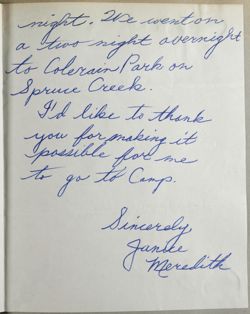 night. We went on
a two night overnight
to Colerain Park on
Spruce Creek.
I'd like to thank
you for making it
possible for me
to go to Camp.
Sincerely,
Janice
Meredith